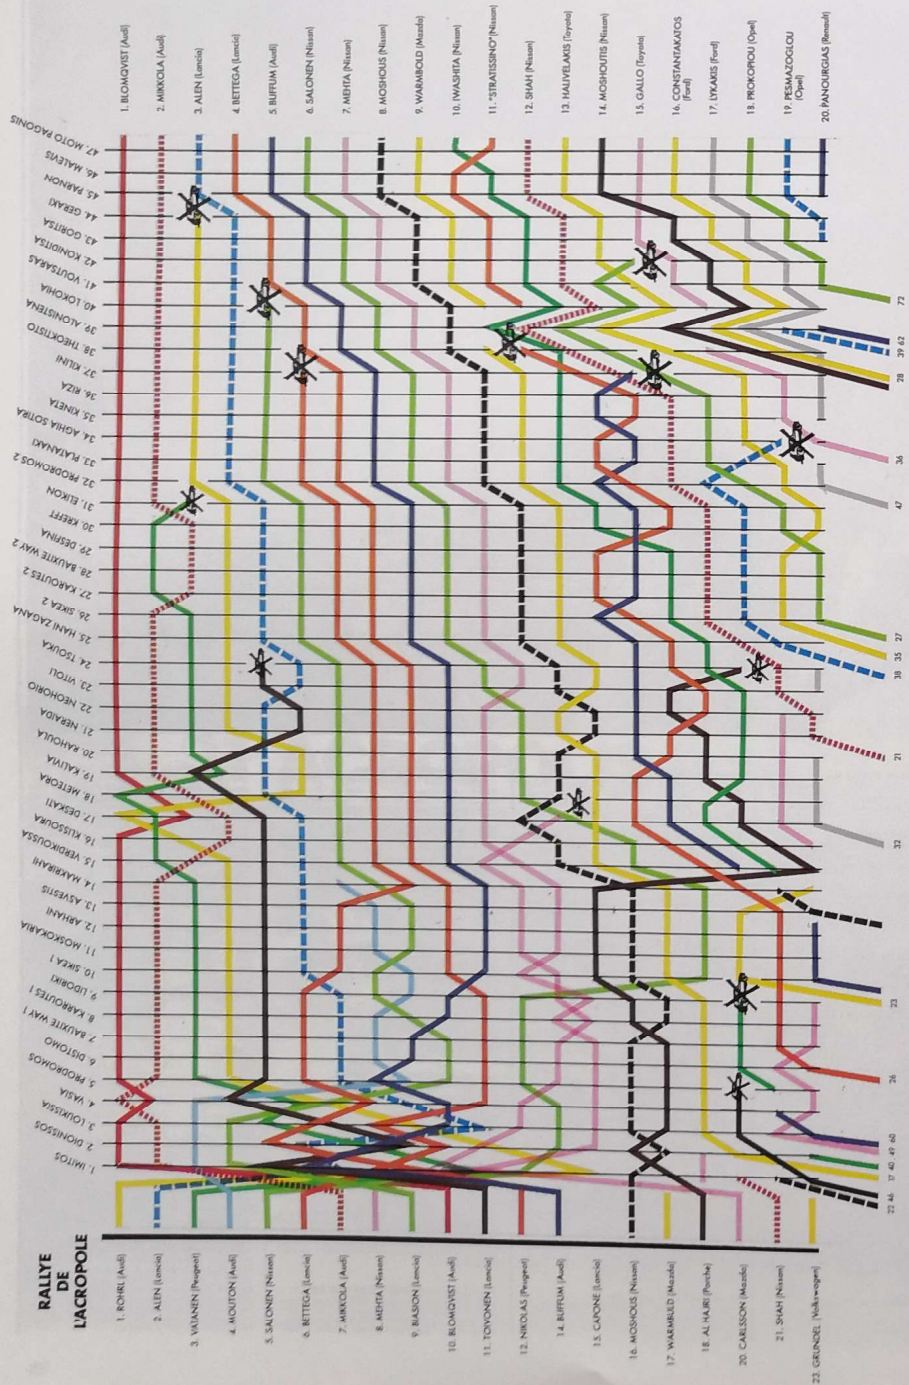 RALLYE
DE
L'ACROPOLE
1. ROHRL (Audi)
2. ALEN (Lancia)
3. VATANEN (Peugeot)
4. MOUTON (Audi)
5. SALONEN (Nissan)
6. BETTEGA (Lancia)
7. MIKKOLA (Audi)
8. MEHTA (Nissan)
9. BIASION (Lancia)
10. BLOMQVIST (Audi)
11. TOIVONEN (Lancia)
12. NIKOLAS (Peugeot)
14. BUFFUM (Audi)
15. CAPONE (Lancia)
16. MOSHOUS (Nissan)
17. WARMBULD (Mazda)
18. AL HAJRI (Porche)
20. CARLSSON (Mazda)
21. SHAH (Nissan)
23. GRUNDEL (Volkswagen)
1. IMITOS
2. DIONISSOS
3. LOUKISSIA
4. VASIA
5. PRODROMOS
6. DISTOMO
7. BAUXITE WAY 1
8. KARROUTES 1
9. LIDORIKI
10. SIKEA 1
11. MOSKOKARIA
12. ARHANI
13. ASVESTIS
14. MAKRIRAHI
15. VERDIKOUSSA
16. KLISSOURA
17. DESKATI
18. METEORA
19. KALIVIA
20. RAHOULA
21. NERAIDA
22. NEOHORIO
23. VITOLI
24. TSOUKA
25. HANI ZAGANA
26. SIKEA 2
27. KAROUTES 2
28. BAUXITE WAY 2
29. DESFINA
30. KREFFT
31. ELIKON
32. PRODROMOS 2
33. PLATANAKI
34. AGHIA SOTIRA
35. KINETA
36. RIZA
37. KILINI
38. THEOKTISTO
39. ALONISTENA
40. LOKOHIA
41. VOUTSARAS
42. KONIDITSA
43. GORITSA
44. GERAKI
45. PARNON
46. MALEVIS
47. MOTO PAGONIS
1. BLOMQVIST (Audi)
2. MIKKOLA (Audi)
3. ALEN (Lancia)
4. BETTEGA (Lancia)
5. BUFFUM (Audi)
6. SALONEN (Nissan)
7. MEHTA (Nissan)
8. MOSHOUS (Nissan)
9. WARMBOLD (Mazda)
10. IWASHITA (Nissan)
11. "STRATISSINO" (Nissan)
12. SHAH (Nissan)
13. HALIVELAKIS (Toyota)
14. MOSHOUTIS (Nissan)
15. GALLO (Toyota)
16. CONSTANTAKATOS
(Ford)
17. LYKAKIS (Ford)
18. PROKOPIOU (Opel)
19. PESMAZOGLOU
(Opel)
20. PANOURGIAS (Renault)
22 46
17
40
49
60
26
23
32
21
38
35
27
47
36
28
39 62
72